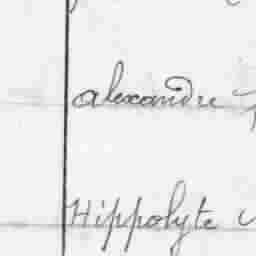 alexandre
Hippolyte